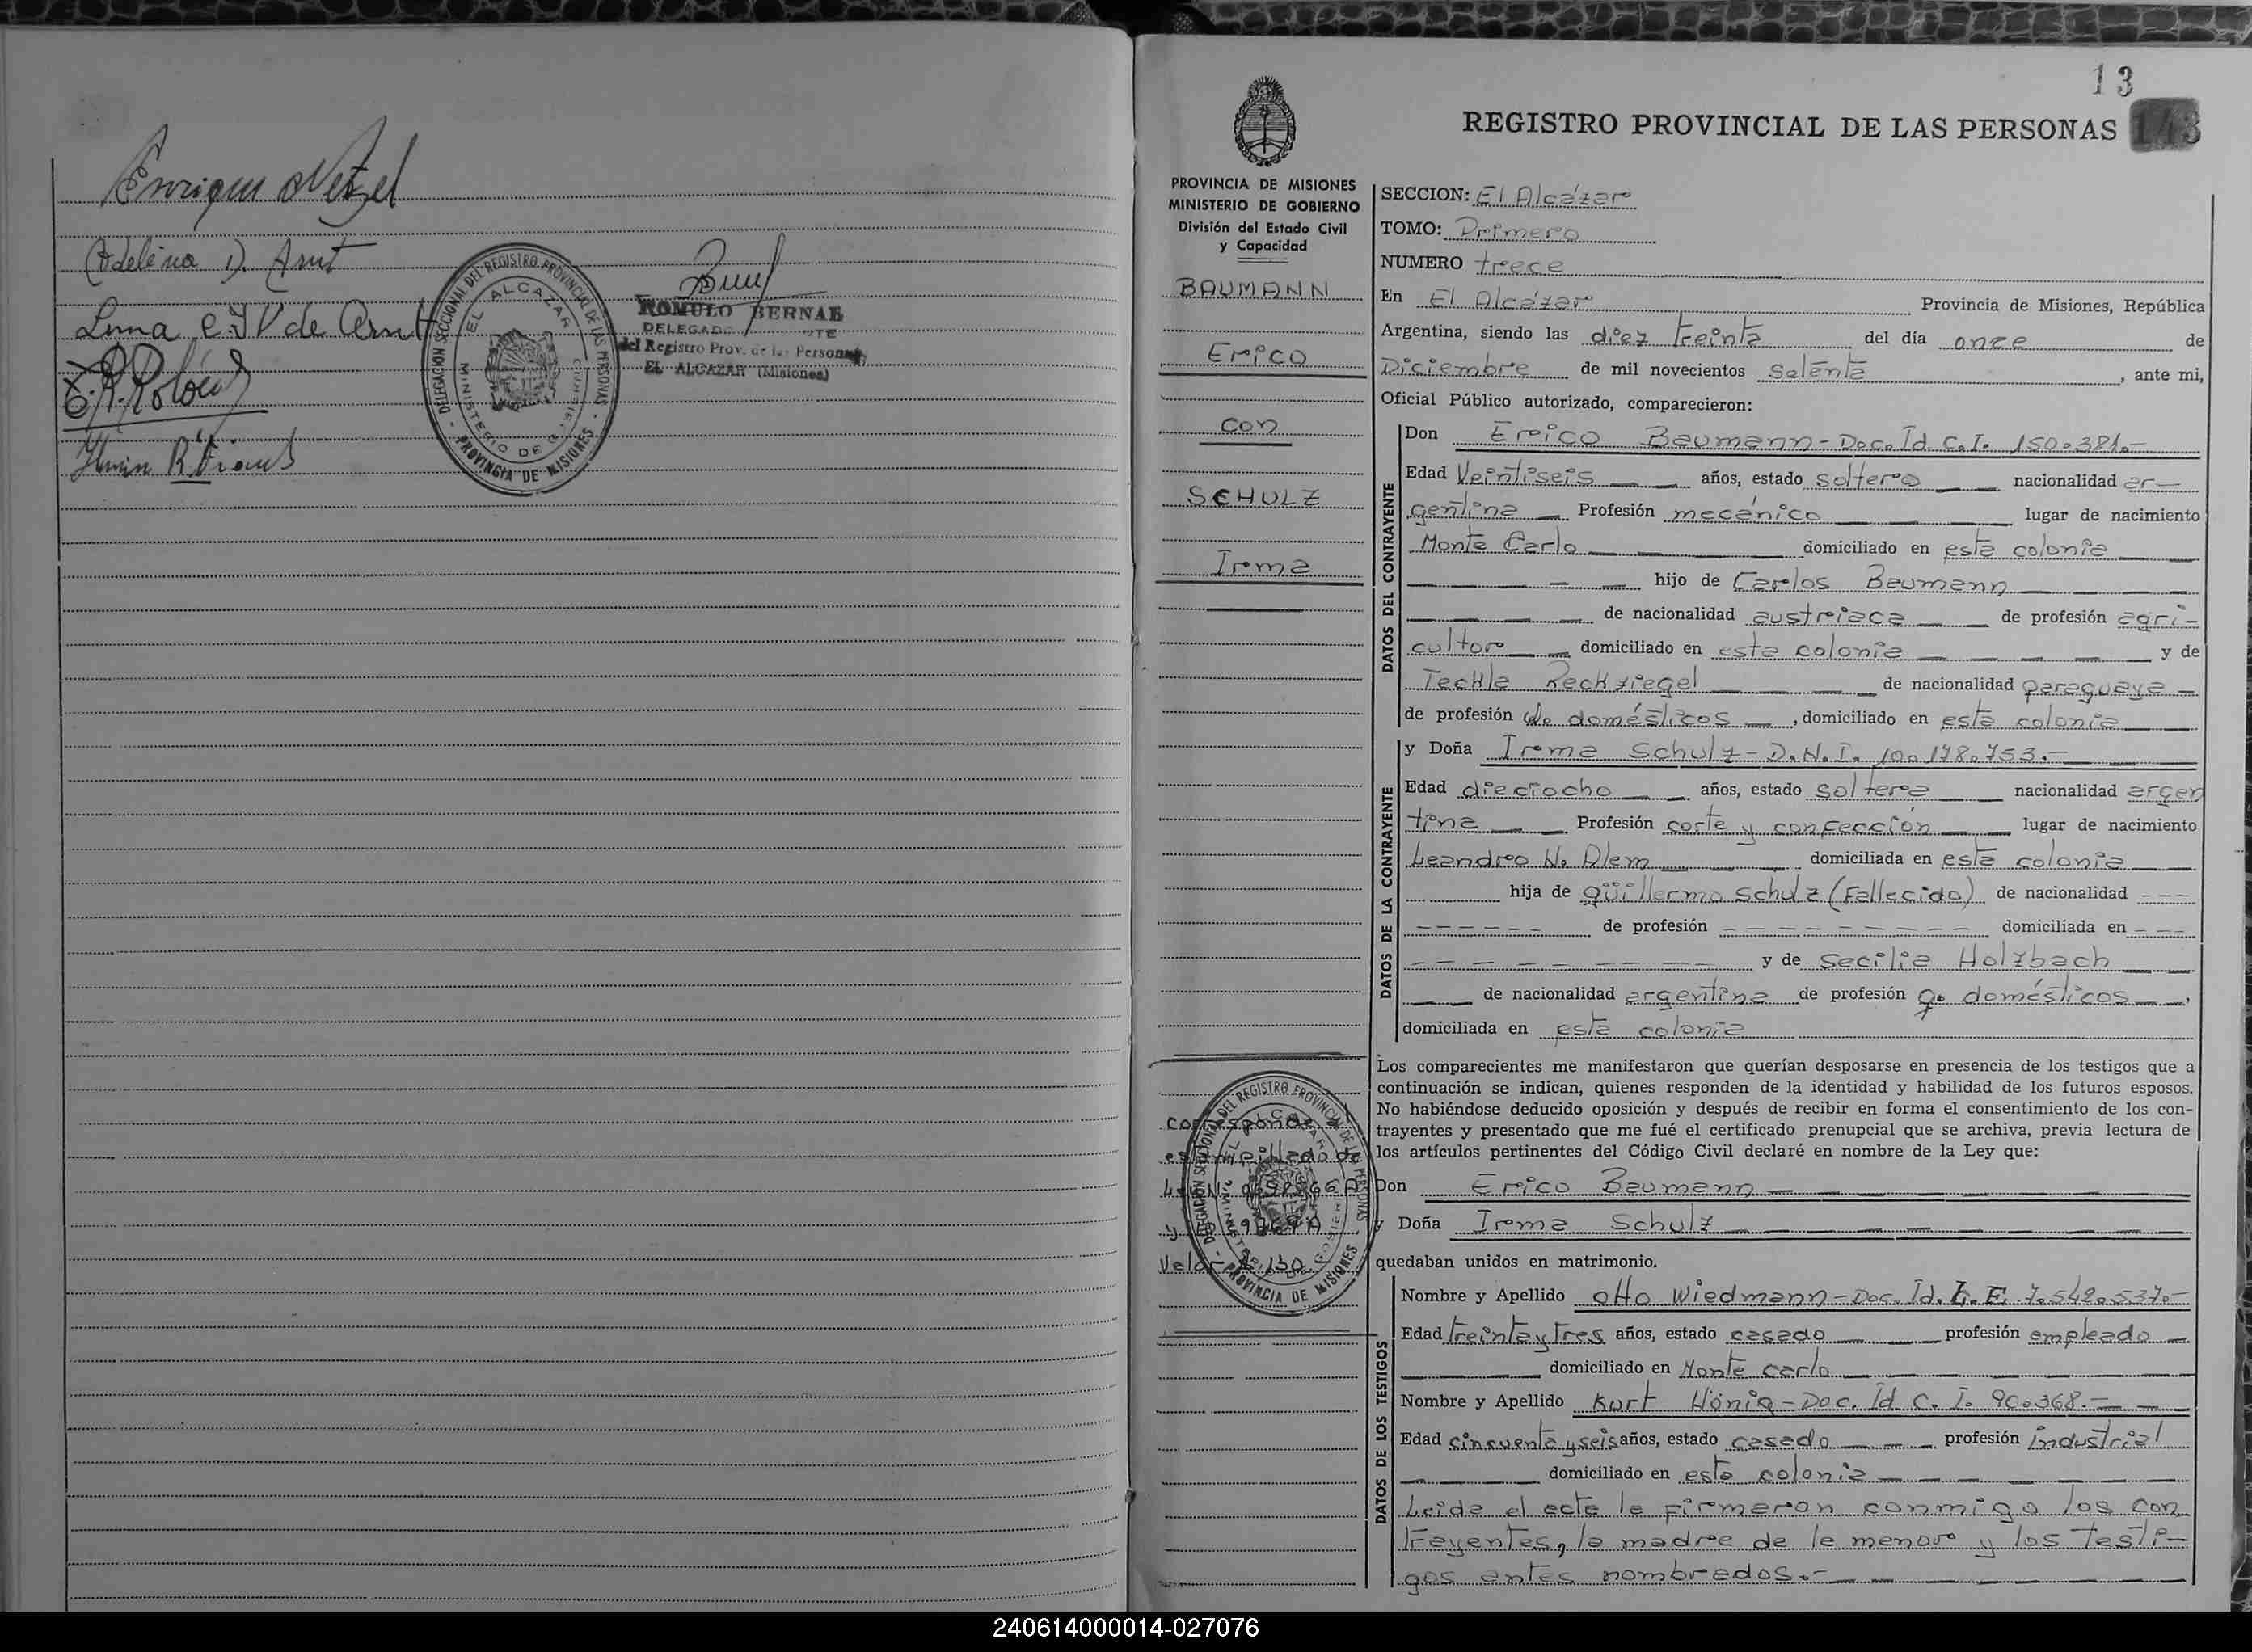 Enrique Netzel
Adelina D. Arnt
Luna e. J V de Arnt
DELEGACION SECCIONAL DEL REGISTRO PROVINCIAL DE LAS PERSONAS
EL ALCAZAR
MINISTERIO DE GOBIERNO
- PROVINCIA DE MISIONES -
ROMULO BERNAL
DELEGADO
del Registro Prov. de las Personas
EL ALCAZAR (Misiones)
13
REGISTRO PROVINCIAL DE LAS PERSONAS 143
PROVINCIA DE MISIONES
MINISTERIO DE GOBIERNO
División del Estado Civil
y Capacidad
BAUMANN
Erico
con
SCHULZ
Irma
SECCION: El Alcázar
TOMO: Primero
NUMERO trece
En El Alcázar Provincia de Misiones, República
Argentina, siendo las diez treinta del día once de
Diciembre de mil novecientos setenta, ante mi,
Oficial Público autorizado, comparecieron:
DATOS DEL CONTRAYENTE
Don Erico Baumann - Doc. Id. C. I. 150.381.-
Edad Veintiseis años, estado soltero nacionalidad ar-
gentina Profesión mecánico lugar de nacimiento
Monte Carlo domiciliado en esta colonia
hijo de Carlos Baumann
de nacionalidad austriaca de profesión agri-
cultor domiciliado en esta colonia y de
Teckla Reckziegel de nacionalidad paraguaya -
de profesión Q. domésticos, domiciliado en esta colonia
DATOS DE LA CONTRAYENTE
y Doña Irma Schulz - D. N. I. 10.178.753.-
Edad dieciocho años, estado soltera nacionalidad argen
tina Profesión corte y confección lugar de nacimiento
Leandro N. Alem domiciliada en esta colonia
hija de Güillermo Schulz (Fallecido) de nacionalidad ---
------ de profesión --------- domiciliada en ---
-------- y de Secilia Holzbach
de nacionalidad argentina de profesión Q. domésticos,
domiciliada en esta colonia
Los comparecientes me manifestaron que querían desposarse en presencia de los testigos que a
continuación se indican, quienes responden de la identidad y habilidad de los futuros esposos.
No habiéndose deducido oposición y después de recibir en forma el consentimiento de los con-
trayentes y presentado que me fué el certificado prenupcial que se archiva, previa lectura de
los artículos pertinentes del Código Civil declaré en nombre de la Ley que:
Don Erico Baumann
y Doña Irma Schulz
quedaban unidos en matrimonio.
corresponde
estampillado de
Ley N
y
Valor $ 130
DELEGACION SECCIONAL DEL REGISTRO PROVINCIAL DE LAS PERSONAS
EL ALCAZAR
MINISTERIO DE GOBIERNO
- PROVINCIA DE MISIONES
DATOS DE LOS TESTIGOS
Nombre y Apellido Otto Wiedmann - Doc. Id. L. E. 7.542.537.-
Edad treinta y tres años, estado casado profesión empleado
domiciliado en Monte Carlo
Nombre y Apellido Kurt Hönig - Doc. Id. C. I. 90.368.-
Edad cincuenta y seis años, estado casado profesión industrial
domiciliado en esta colonia
Leida el acta la firmaron conmigo los con
trayentes, la madre de la menor y los testi-
gos antes nombrados.-
240614000014-027076